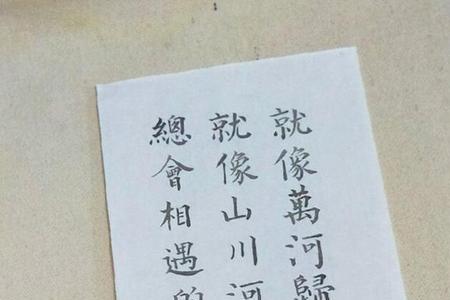 就像萬河歸
就像山川河
總會相遇的